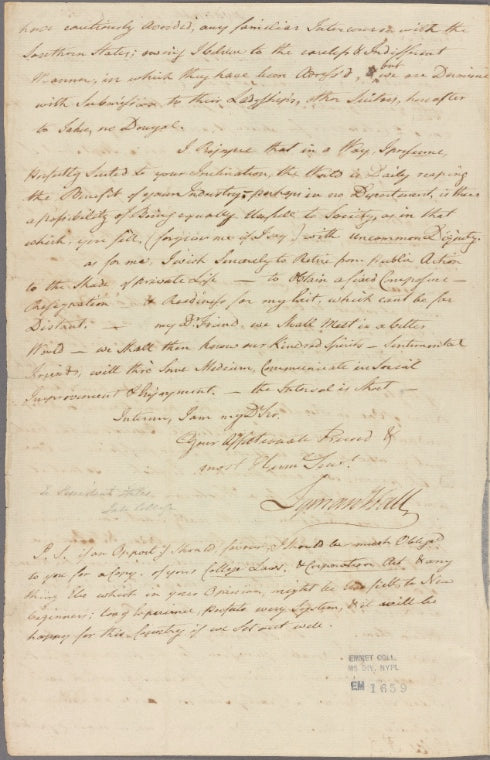 have cautiously avoided, any familiar Intercourse with the
Southern States; owing I believe to the careless & Indifferent
Manner, in which they have been Address'd, but we are Determined
with Submission to their Ladyships, other Suitors, hereafter
to take, no Denyal.
I Rejoyce that in a Way, I presume,
Perfectly Suited to your Inclination, the World is Daily reaping
the Benefit of your Industry - perhaps in no Department, is there
a possibility of Being equally Usefull to Society, as in that
which, you fill, (forgive me if I say) with uncommon Dignity.
as for me. I wish Sincerely to Retire from public Action
to the Shade of private Life — to Obtain a fixed Composure —
Resignation & Readiness for my Exit, which cant be far
Distant. — my Dr. Friend we Shall Meet in a better
World — we Shall then know our Kindred Spirits — Sentimental
Friends, with this Same Medium, Communicate in Social
Improvement & Enjoyment. — the Interval is Short —
Interim, I am my Dr. Sir.
Your Affectionate Friend &
most Hum. Servt.
Lyman Hall
To President Stiles
Yale College
P. S. if an Oppory. Should favour, I should be much Obliged
to you for a Copy of your College Laws, & Corporation Act, & any
thing Else which in your Opinion, might be usefull, to New
beginners; long Experience, Perfects every System, & it will be
happy for this Country if we Set out well.
EMMET COLL.
MS DIV. NYPL
EM 1659